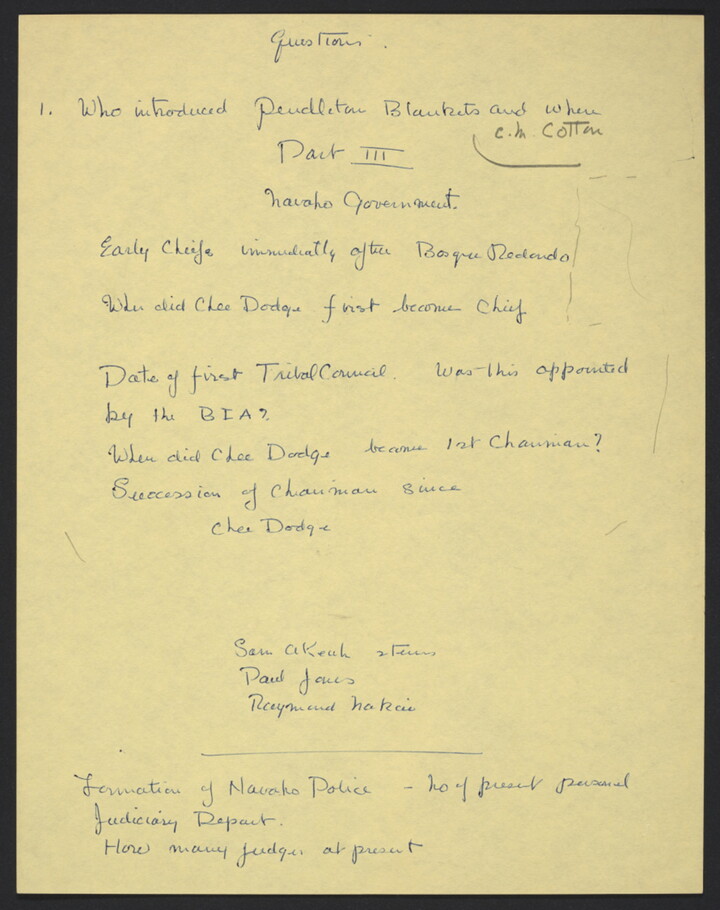 Questions.
1. Who introduced Pendleton Blankets and where
C. M. Cotton
Part III
Navaho Government.
Early Chiefs immediatly after Bosque Redondo
When did Chee Dodge first become Chief
Date of first Tribal Council. Was this appointed
by the BIA?
When did Chee Dodge become 1st Chairman?
Succession of Chairman since
Chee Dodge
Sam Akeah
Paul Jones
Raymond Nakai
Formation of Navaho Police - No of present personel
Judiciary Depart.
How many judges at present